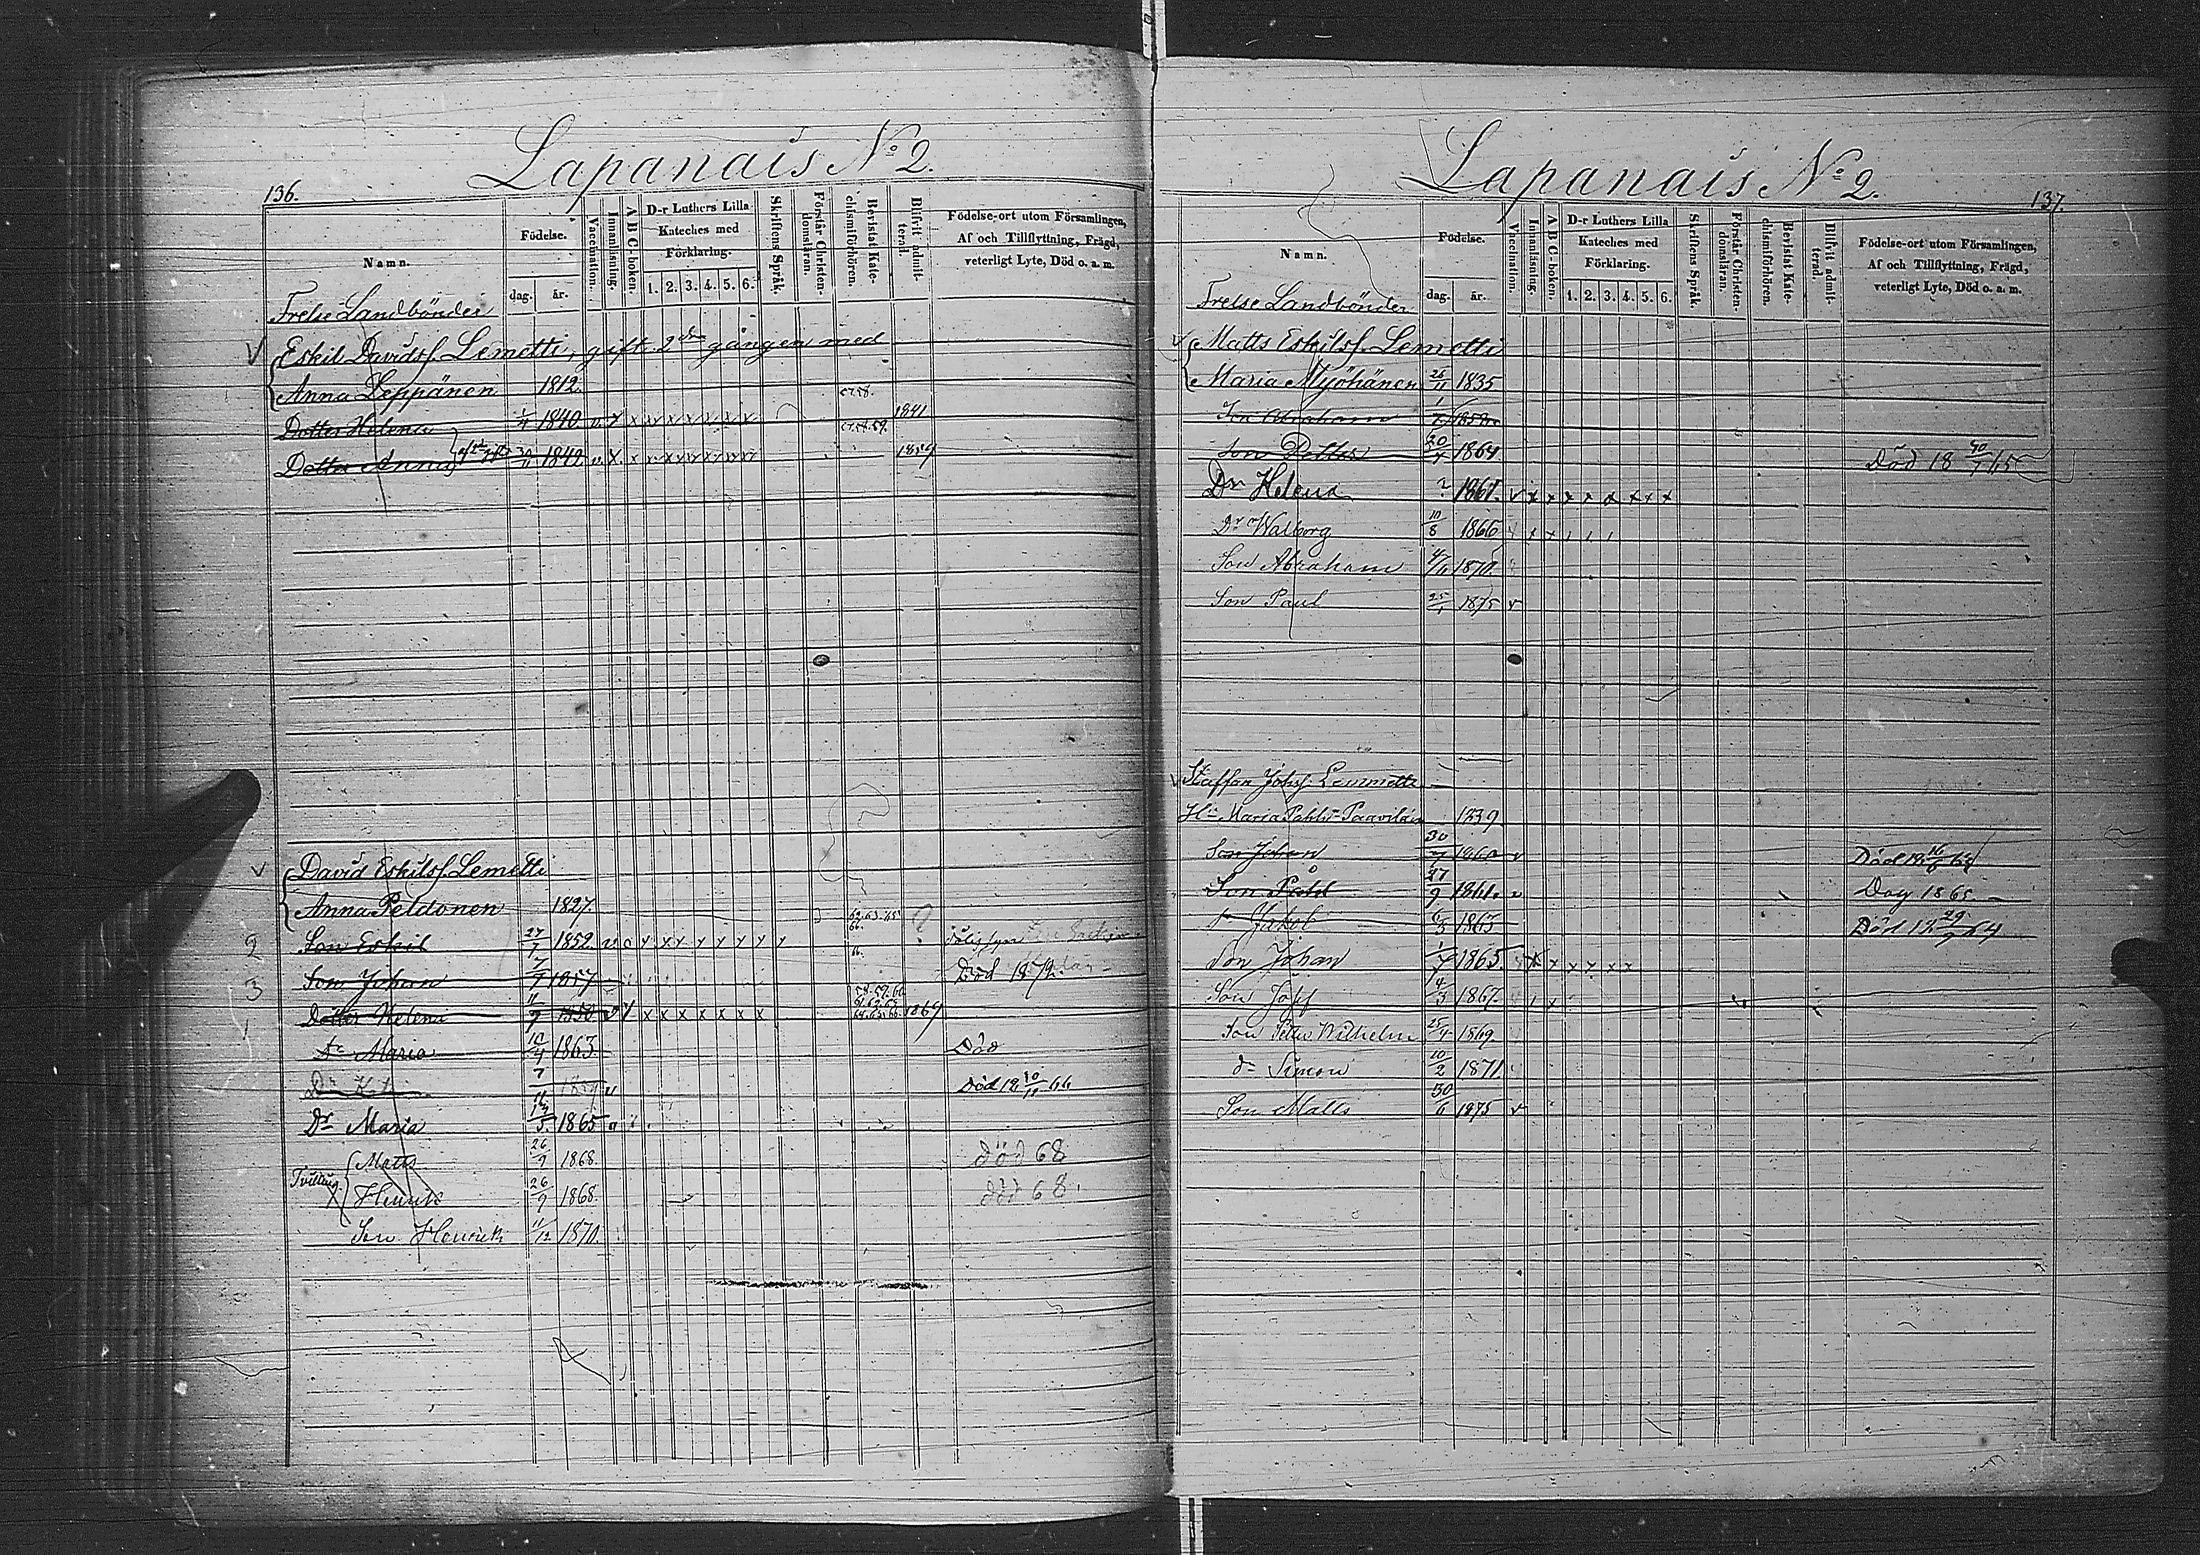 136.
Lapanais No 2.
Namn.
Födelse.
dag. år.
Vaccination.
Innanläsning.
A B C-boken.
D-r Luthers Lilla
Kateches med
Förklaring.
1. 2. 3. 4. 5. 6.
Skriftens Språk.
Förstår Christen-
domsläran.
Bevistat Kate-
chismiförhören.
Blifvit admit-
terad.
Födelse-ort utom Församlingen,
Af och Tillflyttning, Frägd,
veterligt Lyte, Död o. a. m.
Frelse Landbönder
Eskil Davidsf. Lemetti, gift 2dra gången med
Anna Leppänen 1812.
Dotter Helena 1/4 1840. v. x x x x x x x x 57.58. 1841
Dotter Anna 30/11 1842 v. x. x x x x x x x 57.58.59. 1859
David Eskilsf. Lemetti
Anna Peldonen 1827. 62.63.65 66.
2 Son Eskil 27/7 1852.
3 Son Johan 7/9 1857 Död 1872.
1 Dotter Helena 11/9 1850 x x x x x x x 1867
Dr Maria 10/4 1863. Död
Död 18 10/11 66
Dr Maria 1865
Tvilling
Matts 26/9 1868. död 68
Henrik 26/9 1868. död 68.
Son Henrik 11/12 1870.
Lapanais No 2.
137.
Namn.
Födelse.
dag. år.
Vaccination.
Innanläsning.
A B C-boken.
D-r Luthers Lilla
Kateches med
Förklaring.
1. 2. 3. 4. 5. 6.
Skriftens Språk.
Förstår Christen-
domsläran.
Bevistat Kate-
chismiförhören.
Blifvit admit-
terad.
Födelse-ort utom Församlingen,
Af och Tillflyttning, Frägd,
veterligt Lyte, Död o. a. m.
Frelse Landbönder
Matts Eskilsf. Lemetti
Maria Myöhänen 26/11 1835
Son Abraham 1858
Son Petter 20/7 1864 Död 18 65
Dr Helena 1861. v x x x x x x x x
Dr Walborg 10/8 1866
Son Abraham 4/11 1870.
Son Paul 25/1 1875 v
Staffan Johsf. Lemmetti
Hu Maria Pahlsdr Paavilain 1839
Son Johan 30/7 1860 v Död 18 16/6 68
Son Påhl 27/9 1861. v Dog 1865.
Jakob 6/3 1863 Död 18 29/9 64
Son Johan 1/7 1865. x x x x x x
Son Josef 14/3 1867.
Son Peter Wilhelm 25/4 1869
dr Simon 10/2 1871.
Son Matts 30/6 1875 v